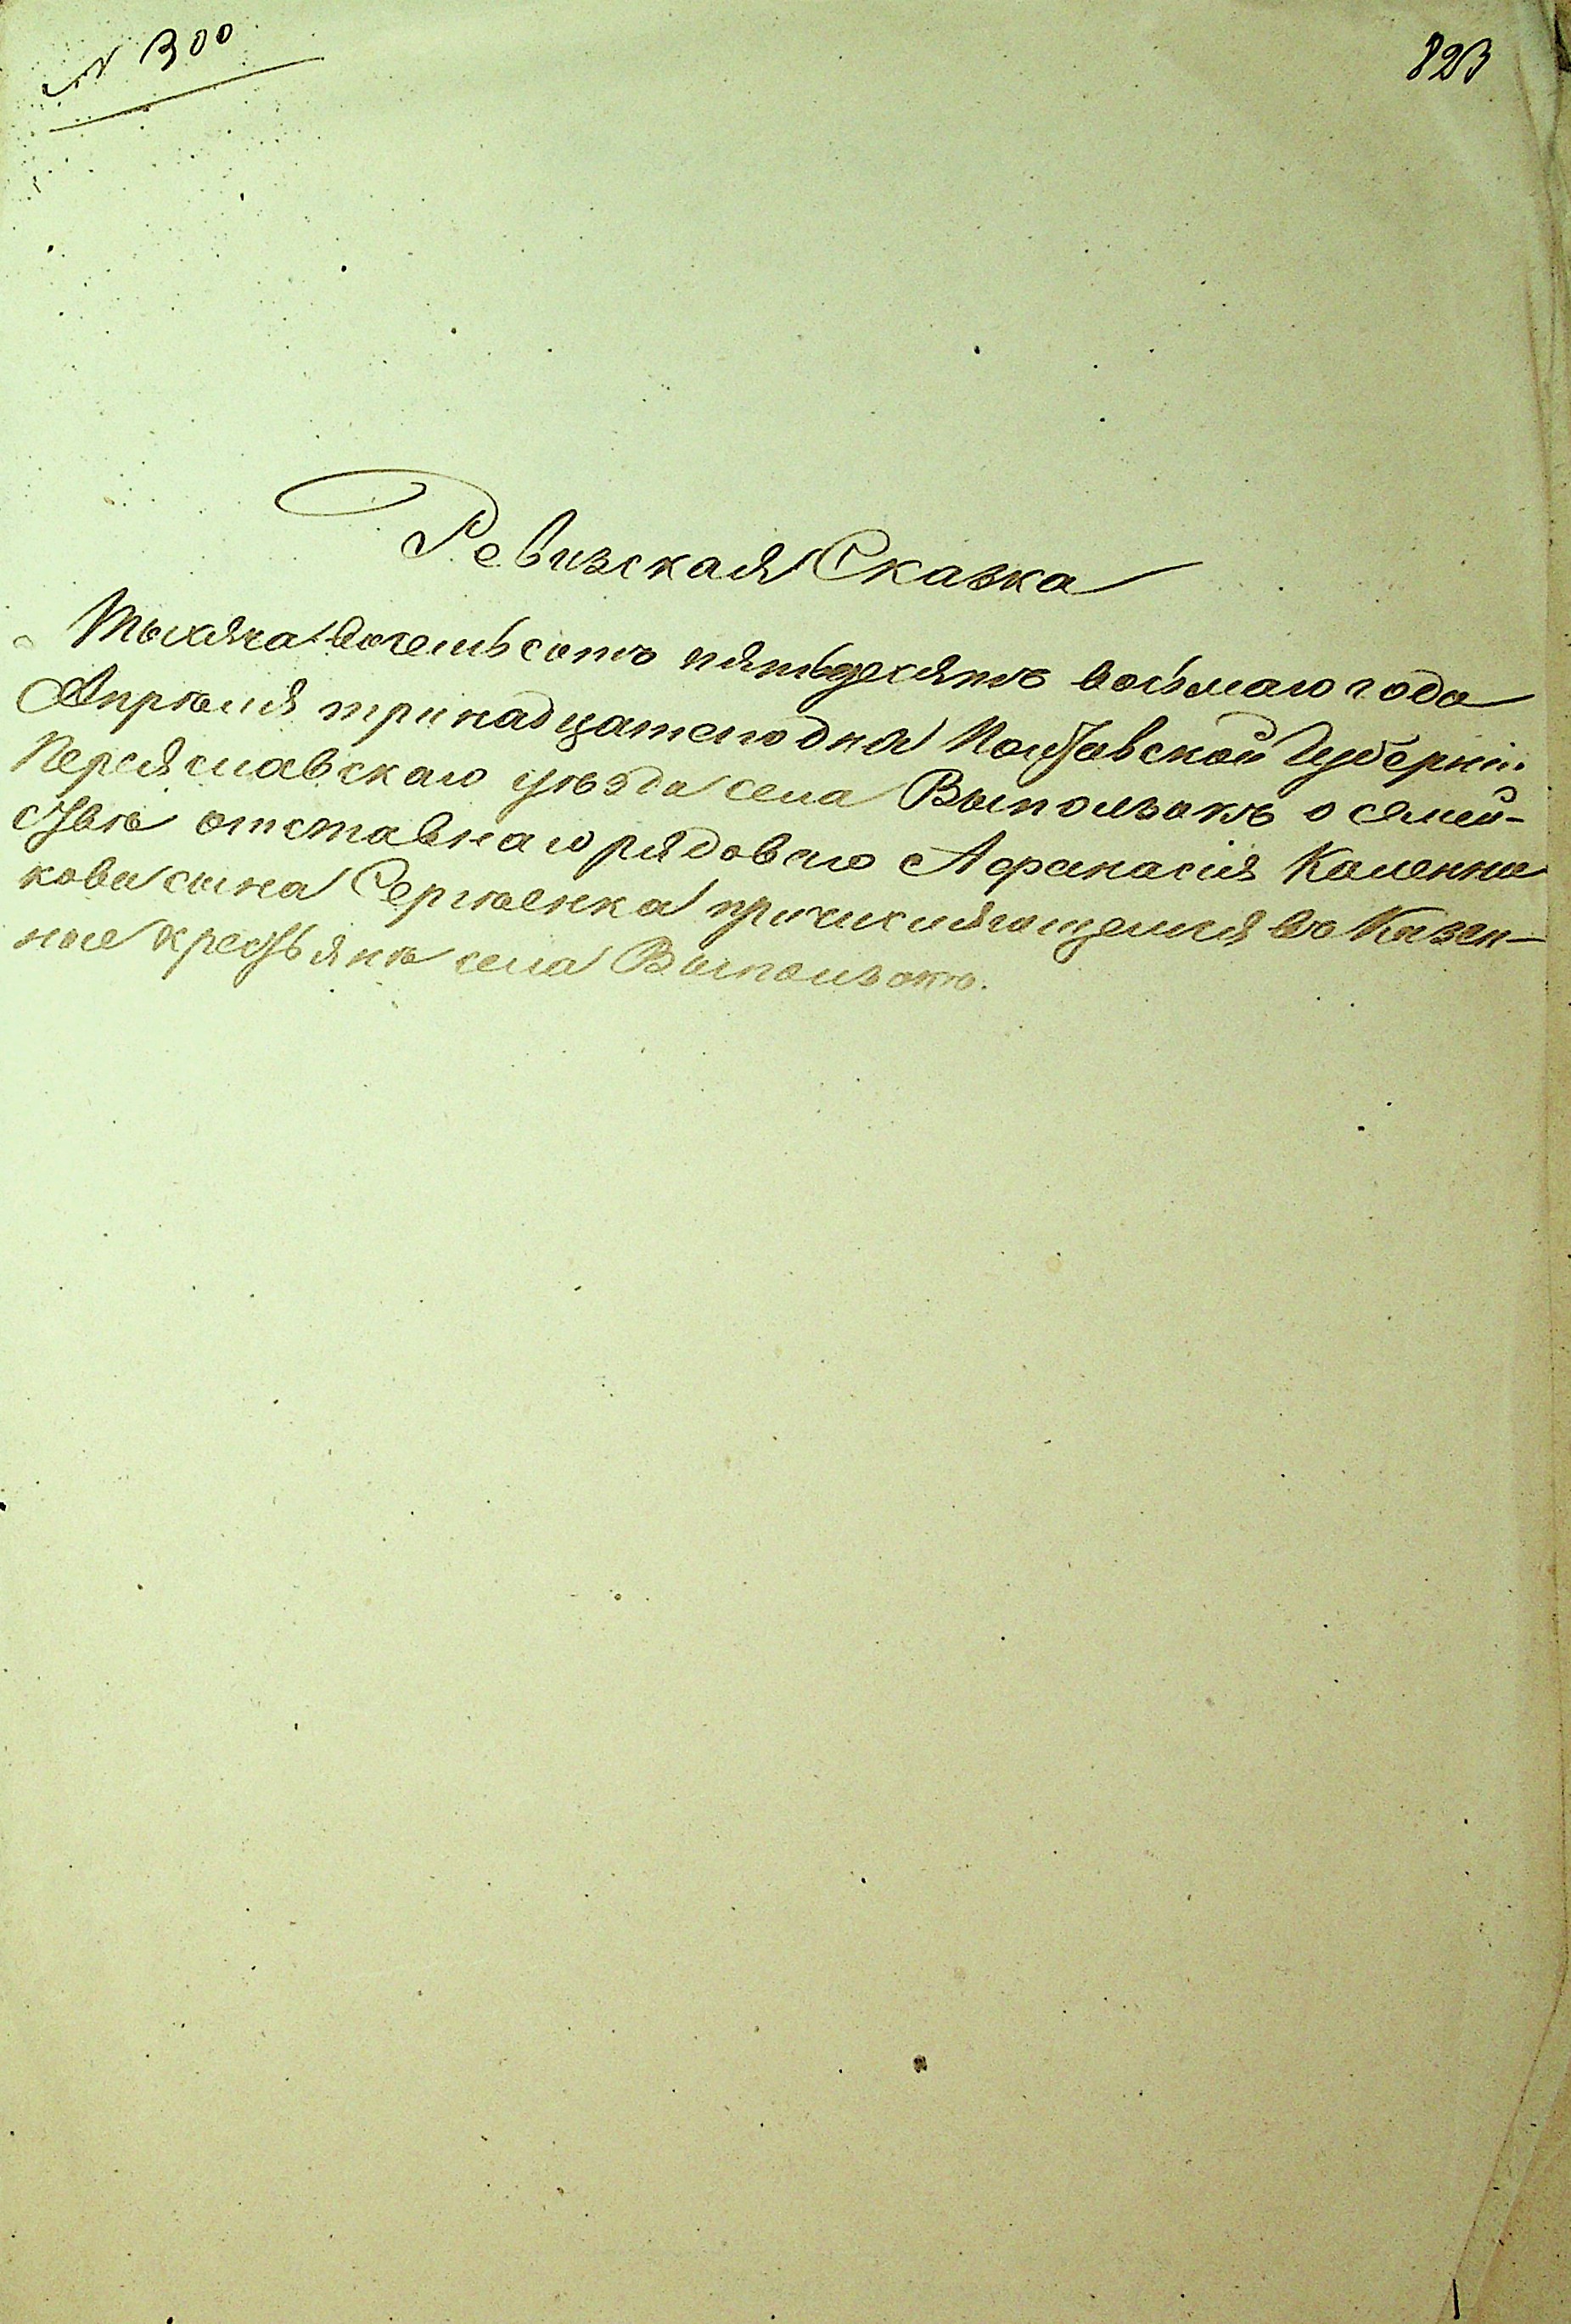 N 300
823
Ревизская Сказка
Тысяча восемьсотъ пятьдесятъ восьмаго года
Апрѣля тринадцатого дня Полтавской Губерніи
Переяславскаго уѣзда села Выползокъ о семей-
ствѣ отставнаго рядоваго Афанасія Каленни
кова сына Сергѣенка причисляющемся въ Казен-
ные крестьяне села Выползокъ.